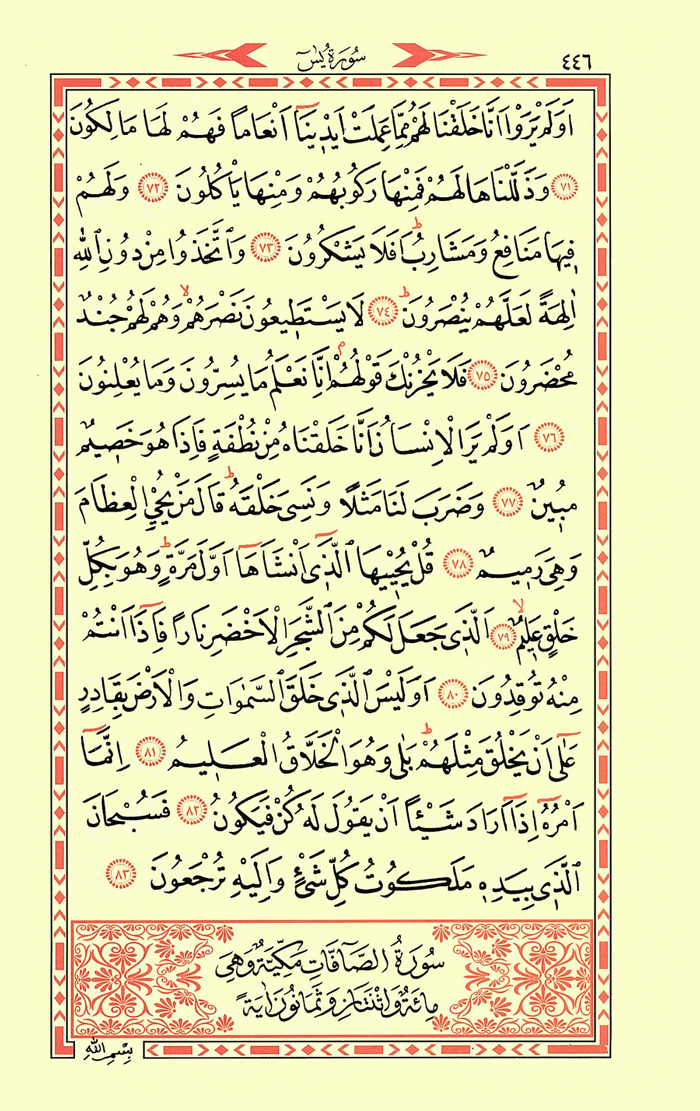 ٤٤٦
سُورَةُ يٰسٓ
اَوَلَمْ يَرَوْا اَنَّا خَلَقْنَا لَهُمْ مِمَّا عَمِلَتْ اَيْدٖينَٓا اَنْعَاماً فَهُمْ لَهَا مَالِكُونَ
﴿٧١﴾ وَذَلَّلْنَاهَا لَهُمْ فَمِنْهَا رَكُوبُهُمْ وَمِنْهَا يَأْكُلُونَ ﴿٧٢﴾ وَلَهُمْ
فٖيهَا مَنَافِعُ وَمَشَارِبُۜ اَفَلَا يَشْكُرُونَ ﴿٧٣﴾ وَاتَّخَذُوا مِنْ دُونِ اللّٰهِ
اٰلِهَةً لَعَلَّهُمْ يُنْصَرُونَۜ ﴿٧٤﴾ لَا يَسْتَطٖيعُونَ نَصْرَهُمْۙ وَهُمْ لَهُمْ جُنْدٌ
مُحْضَرُونَ ﴿٧٥﴾ فَلَا يَحْزُنْكَ قَوْلُهُمْۢ اِنَّا نَعْلَمُ مَا يُسِرُّونَ وَمَا يُعْلِنُونَ
﴿٧٦﴾ اَوَلَمْ يَرَ الْاِنْسَانُ اَنَّا خَلَقْنَاهُ مِنْ نُطْفَةٍ فَاِذَا هُوَ خَصٖيمٌ
مُبٖينٌ ﴿٧٧﴾ وَضَرَبَ لَنَا مَثَلاً وَنَسِيَ خَلْقَهُۜ قَالَ مَنْ يُحْيِ الْعِظَامَ
وَهِيَ رَمٖيمٌ ﴿٧٨﴾ قُلْ يُحْيٖيهَا الَّذٖٓي اَنْشَاَهَٓا اَوَّلَ مَرَّةٍۜ وَهُوَ بِكُلِّ
خَلْقٍ عَلٖيمٌۙ ﴿٧٩﴾ اَلَّذٖي جَعَلَ لَكُمْ مِنَ الشَّجَرِ الْاَخْضَرِ نَاراً فَاِذَٓا اَنْتُمْ
مِنْهُ تُوقِدُونَ ﴿٨٠﴾ اَوَلَيْسَ الَّذٖي خَلَقَ السَّمٰوَاتِ وَالْاَرْضَ بِقَادِرٍ
عَلٰٓى اَنْ يَخْلُقَ مِثْلَهُمْۜ بَلٰى وَهُوَ الْخَلَّاقُ الْعَلٖيمُ ﴿٨١﴾ اِنَّمَٓا
اَمْرُهُٓ اِذَٓا اَرَادَ شَيْـٔاً اَنْ يَقُولَ لَهُ كُنْ فَيَكُونُ ﴿٨٢﴾ فَسُبْحَانَ
الَّذٖي بِيَدِهٖ مَلَكُوتُ كُلِّ شَيْءٍ وَاِلَيْهِ تُرْجَعُونَ ﴿٨٣﴾
سُورَةُ الصَّٓافَّاتِ مَكِّيَّةٌ وَهِيَ
مِائَةٌ وَاثْنَتَانِ وَثَمَانُونَ اٰيَةً
بِسْمِ اللّٰهِ